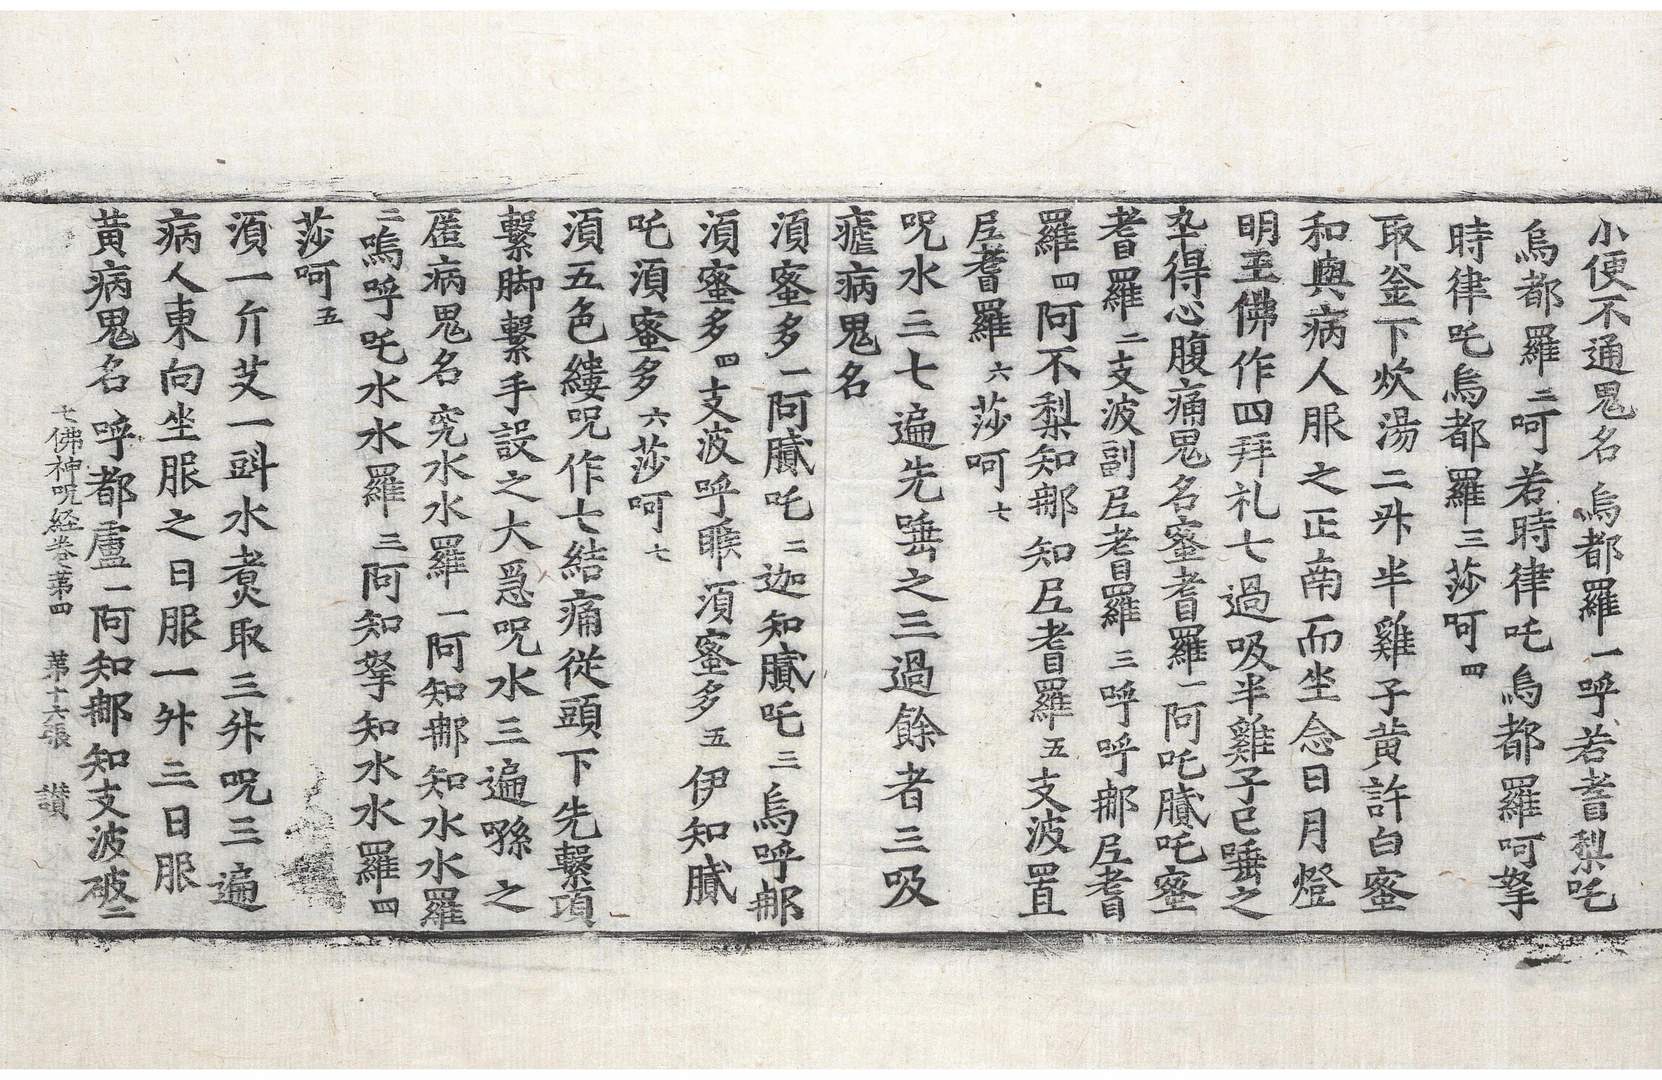 小便不通鬼名烏都羅一呼若耆梨吒
烏都羅二呵若時律吒烏都羅呵拏
時律吒烏都羅三莎呵四
取釜下炊湯二升半雞子黃許白蜜
和與病人服之正南而坐念日月燈
明王佛作四拜礼七過吸半雞子已唾之
卒得心腹痛鬼名蜜耆羅一阿吒膩吒蜜
耆羅二支波副𡰱耆羅三呼呼那𡰱耆
羅四阿不梨知那知𡰱耆羅五支波置
𡰱耆羅六莎呵七
呪水三七遍先唾之三過餘者三吸
瘧病鬼名
須蜜多一阿膩吒二迦知膩吒三烏呼那
須蜜多四支波呼睺須蜜多五伊知膩
吒須蜜多六莎呵七
須五色縷呪作七結痛從頭下先繫項
繫脚繫手設之大急呪水三遍噀之
匿病鬼名究水水羅一阿知那知水水羅
二嗚呼吒水水羅三阿知拏知水水羅四
莎呵五
須一斤艾一㪷水煑取三升呪三遍
病人東向坐服之日服一升三日服
黃病鬼名呼都盧一阿知那知支波破二
七佛神呪経卷第四 第十六張 讃